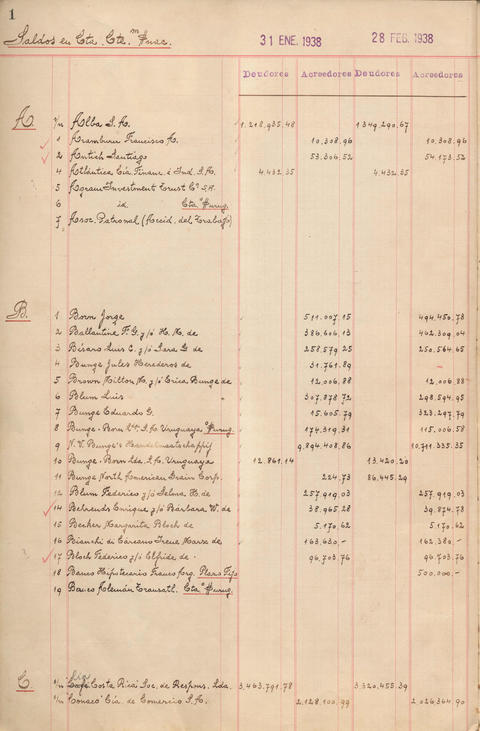 1
Saldos en Cta. Cte. m$nac.
31 ENE. 1938
28 FEB. 1938
Deudores Acreedores Deudores Acreedores
A s/n Alba S.A. 1.218.935.48 1349.290.67
1 Aramburu Francisco A. 10.308.96 10.308.96
2 Antich Santiago 53.306.52 54.173.52
4 Atlántica Cía Financ. é Ind. S.A. 4.432.35 4.432.35
5 Agram Investment Trust Co S.A.
6 id Cta $urug.
7 Asoc. Patronal (Accid. del Trabajo)
B. 1 Born Jorge 511.007.15 494.456.78
2 Ballantine F.G. y/ó H.M. de 386.606.13 462.309.04
3 Bisaro Luis C. y/ó Sara G. de 258.579.25 250.564.65
4 Bunge Jules Herederos de 31.761.89
5 Brown Milton M. y/ó Erica Bunge de 12.006.88 12.006.88
6 Blum Luis 307.878.72 298.594.95
7 Bunge Eduardo G. 15.605.79 323.297.79
8 Bunge-Born S.A. Uruguaya $urug. 174.319.31 115.006.58
9 N.V. Bunge's Handelmaatschappij 9.894.408.86 10.711.335.35
10 Bunge-Born Ltda. S.A. Uruguaya 12.861.14 13.420.20
11 Bunge North American Grain Corp. 224.73 86.445.29
12 Blum Federico y/ó Selma H. de 257.919.03 257.919.03
14 Behrends Enrique y/ó Bárbara W. de 38.965.28 39.874.78
15 Becker Margarita Bloch de 5.170.62 5.170.62
16 Bianchi di Cárcano Irene Marse de 163.630- 162.380-
17 Bloch Federico y/ó Elfride de 96.703.76 96.703.76
18 Banco Hipotecario Franco Arg. Plazo Fijo 500.000.-
19 Banco Alemán Transatl. Cta $urug.
C s/n Costa Rica Soc. de Respons. Lda. 3.463.791.78 3.320.455.39
s/n "Conaco" Cía. de Comercio S.A. 2.128.100.99 2.026.364.90